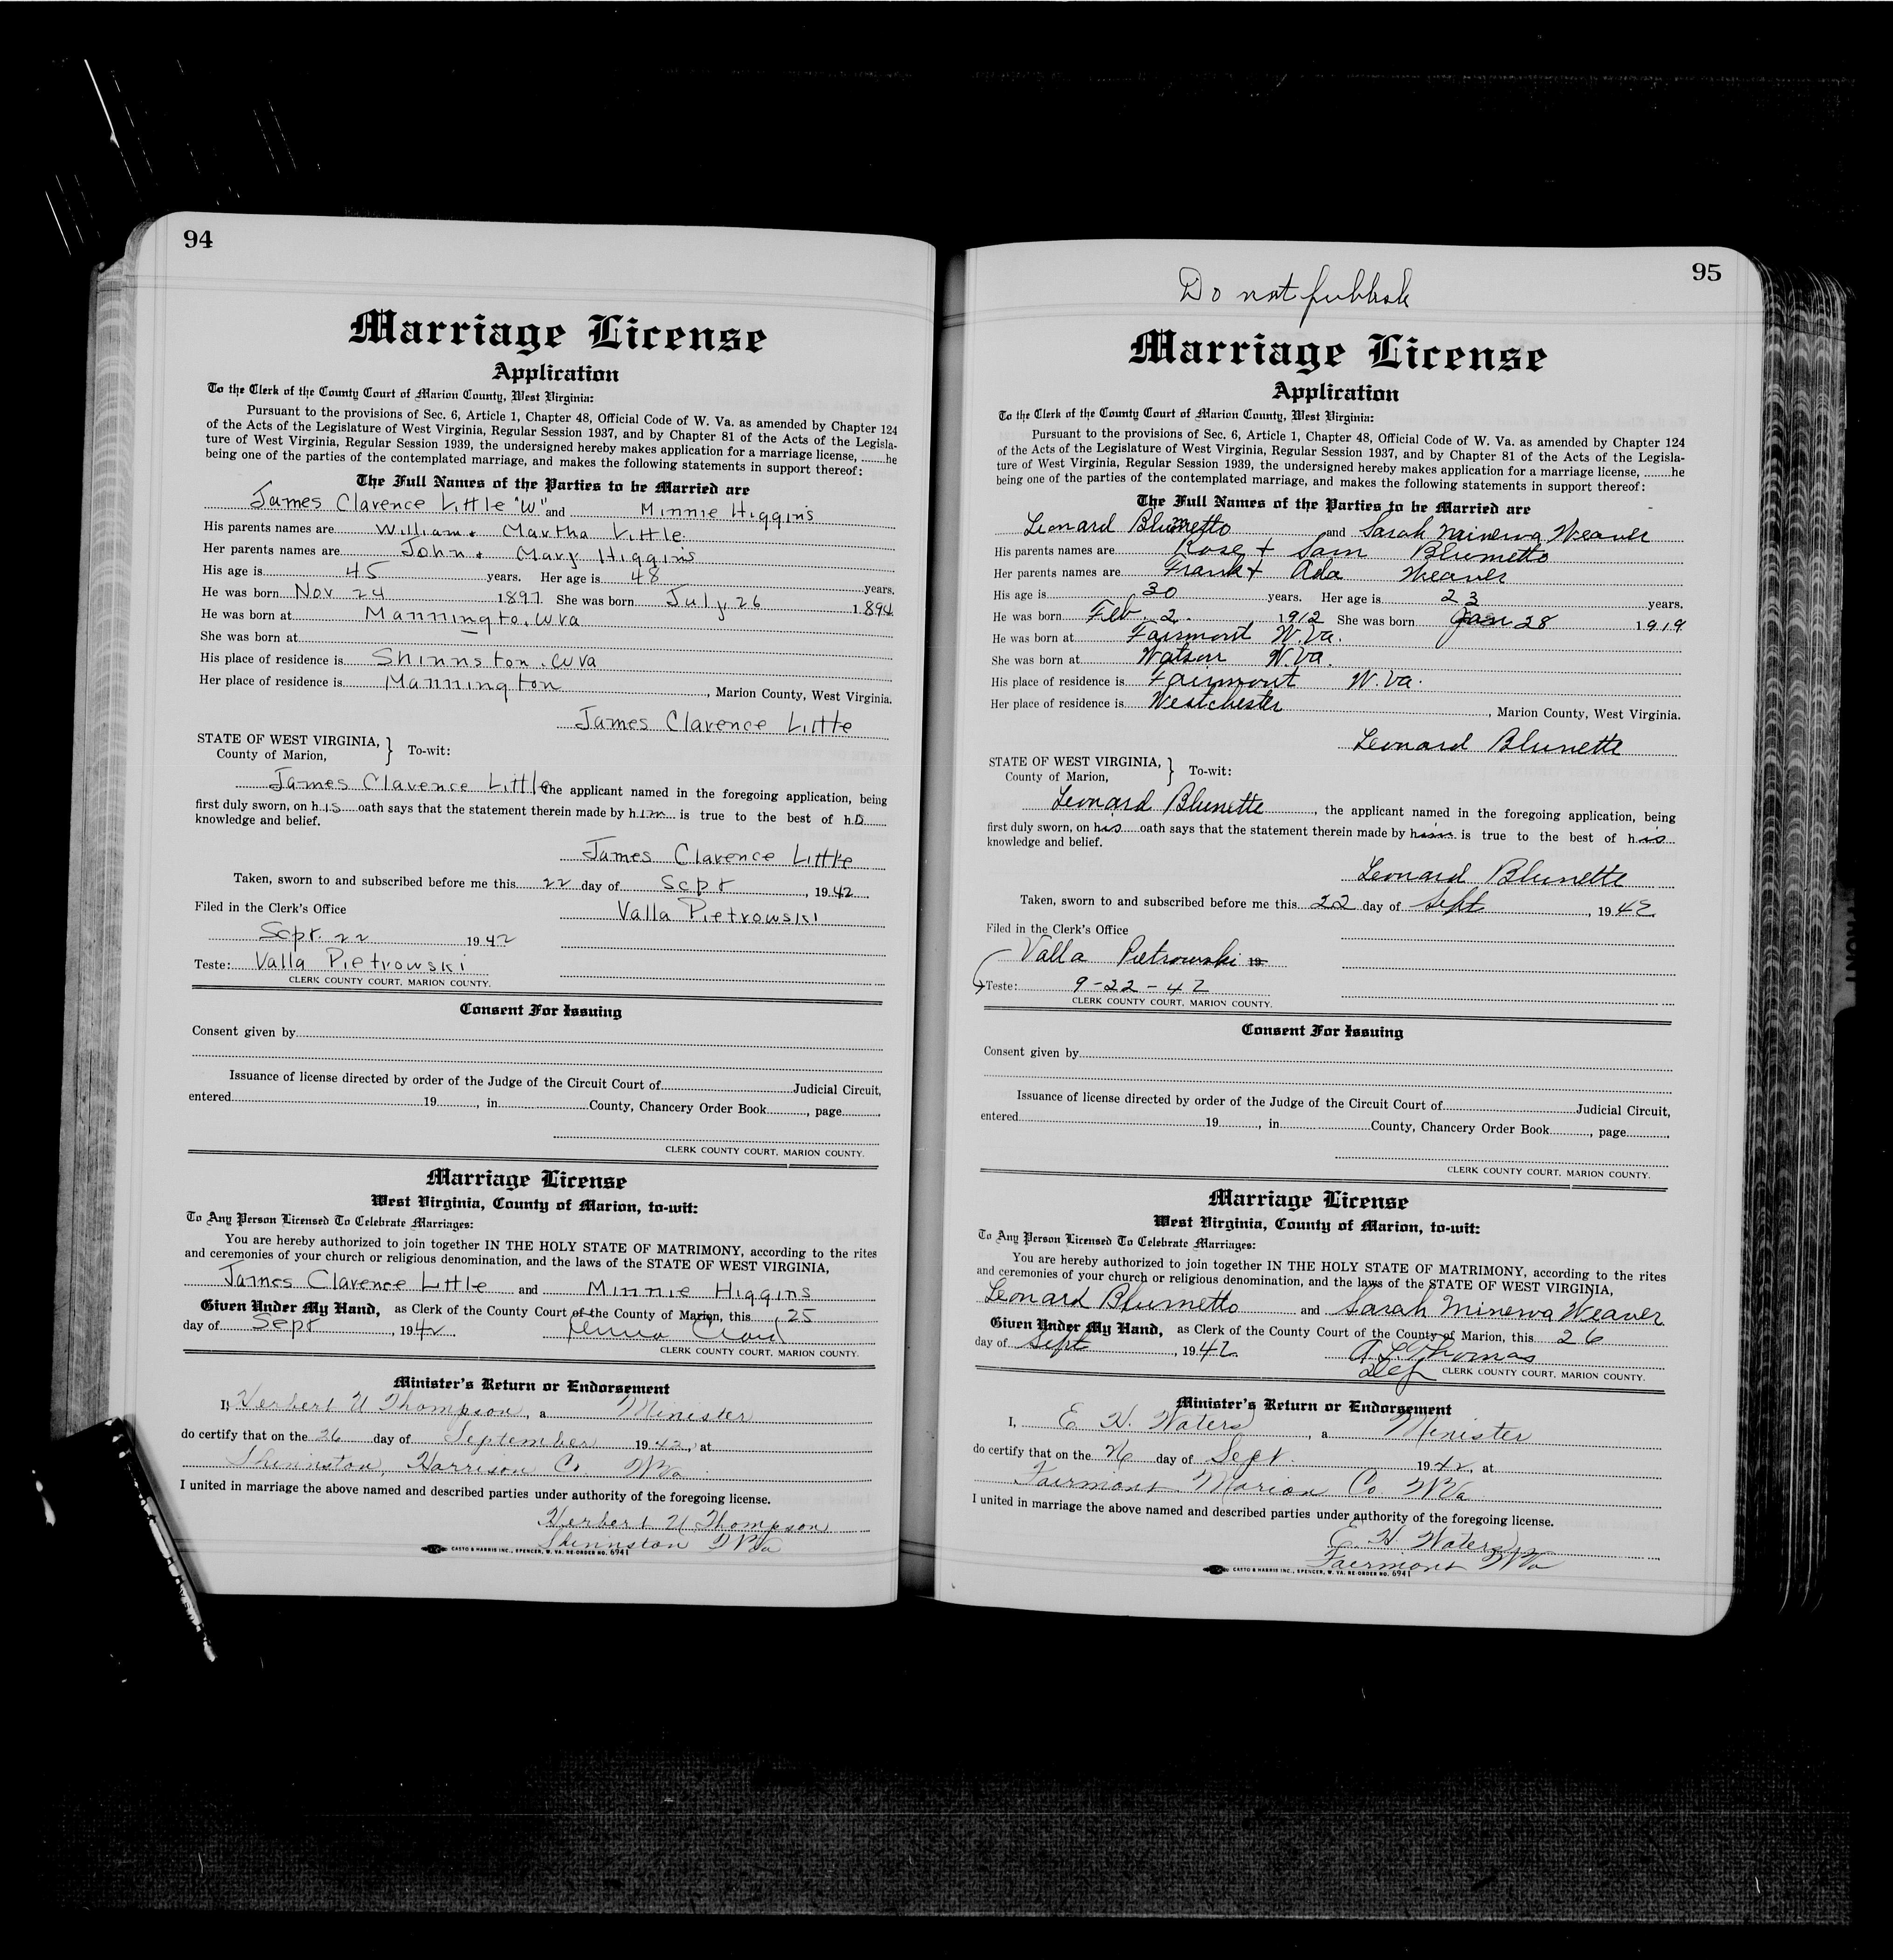 94
Marriage License
Application
To the Clerk of the County Court of Marion County, West Virginia:
Pursuant to the provisions of Sec. 6, Article 1, Chapter 48, Official Code of W. Va. as amended by Chapter 124
of the Acts of the Legislature of West Virginia, Regular Session 1937, and by Chapter 81 of the Acts of the Legisla-
ture of West Virginia, Regular Session 1939, the undersigned hereby makes application for a marriage license, ........he
being one of the parties of the contemplated marriage, and makes the following statements in support thereof:
The Full Names of the Parties to be Married are
James Clarence Little "W" and Minnie Higgins
His parents names are William & Martha Little
Her parents names are John & Mary Higgins
His age is 45 years. Her age is 48 years.
He was born Nov 24 1897 She was born July 26 1894
He was born at Mannington, W Va
She was born at
His place of residence is Shinnston. W Va
Her place of residence is Mannington, Marion County, West Virginia.
James Clarence Little
STATE OF WEST VIRGINIA,
County of Marion, } To-wit:
James Clarence Little the applicant named in the foregoing application, being
first duly sworn, on his oath says that the statement therein made by him is true to the best of his
knowledge and belief.
James Clarence Little
Taken, sworn to and subscribed before me this 22 day of Sept, 1942.
Filed in the Clerk's Office Valla Pietrowski
Sept. 22 1942
Teste: Valla Pietrowski
CLERK COUNTY COURT, MARION COUNTY.
Consent For Issuing
Consent given by
Issuance of license directed by order of the Judge of the Circuit Court of Judicial Circuit,
entered 19, in County, Chancery Order Book, page
CLERK COUNTY COURT, MARION COUNTY.
Marriage License
West Virginia, County of Marion, to-wit:
To Any Person Licensed To Celebrate Marriages:
You are hereby authorized to join together IN THE HOLY STATE OF MATRIMONY, according to the rites
and ceremonies of your church or religious denomination, and the laws of the STATE OF WEST VIRGINIA,
James Clarence Little and Minnie Higgins
Given Under My Hand, as Clerk of the County Court of the County of Marion, this 25
day of Sept, 1942
CLERK COUNTY COURT, MARION COUNTY.
Minister's Return or Endorsement
I, Herbert U Thompson, a Minister
do certify that on the 26 day of September 1942, at
Shinnston, Harrison Co. W Va
I united in marriage the above named and described parties under authority of the foregoing license.
Herbert U Thompson
Shinnston W Va
CASTO & HARRIS INC., SPENCER, W. VA. RE-ORDER NO. 6941
95
Do not publish
Marriage License
Application
To the Clerk of the County Court of Marion County, West Virginia:
Pursuant to the provisions of Sec. 6, Article 1, Chapter 48, Official Code of W. Va. as amended by Chapter 124
of the Acts of the Legislature of West Virginia, Regular Session 1937, and by Chapter 81 of the Acts of the Legisla-
ture of West Virginia, Regular Session 1939, the undersigned hereby makes application for a marriage license, ........he
being one of the parties of the contemplated marriage, and makes the following statements in support thereof:
The Full Names of the Parties to be Married are
Leonard Blumetto and Sarah Minerva Weaver
His parents names are Rose + Sam Blumetto
Her parents names are Frank + Ada Weaver
His age is 30 years. Her age is 23 years.
He was born Feb. 2. 1912 She was born Jan 28 1919
He was born at Fairmont W. Va.
She was born at Watson W. Va.
His place of residence is Fairmont W. Va.
Her place of residence is Westchester, Marion County, West Virginia.
Leonard Blunette
STATE OF WEST VIRGINIA,
County of Marion, } To-wit:
Leonard Blunette, the applicant named in the foregoing application, being
first duly sworn, on his oath says that the statement therein made by him is true to the best of his
knowledge and belief.
Leonard Blunette
Taken, sworn to and subscribed before me this 22 day of Sept, 1942
Filed in the Clerk's Office
Valla Pietrowski 19
Teste: 9-22-42
CLERK COUNTY COURT, MARION COUNTY.
Consent For Issuing
Consent given by
Issuance of license directed by order of the Judge of the Circuit Court of Judicial Circuit,
entered 19, in County, Chancery Order Book, page
CLERK COUNTY COURT, MARION COUNTY.
Marriage License
West Virginia, County of Marion, to-wit:
To Any Person Licensed To Celebrate Marriages:
You are hereby authorized to join together IN THE HOLY STATE OF MATRIMONY, according to the rites
and ceremonies of your church or religious denomination, and the laws of the STATE OF WEST VIRGINIA,
Leonard Blumetto and Sarah Minerva Weaver
Given Under My Hand, as Clerk of the County Court of the County of Marion, this 26
day of Sept, 1942 A. L. Thomas
CLERK COUNTY COURT, MARION COUNTY.
Minister's Return or Endorsement
I, E. H. Waters, a Minister
do certify that on the 26 day of Sept. 1942, at
Fairmont Marion Co. W Va
I united in marriage the above named and described parties under authority of the foregoing license.
E. H. Waters
Fairmont W Va
CASTO & HARRIS INC., SPENCER, W. VA. RE-ORDER NO. 6941